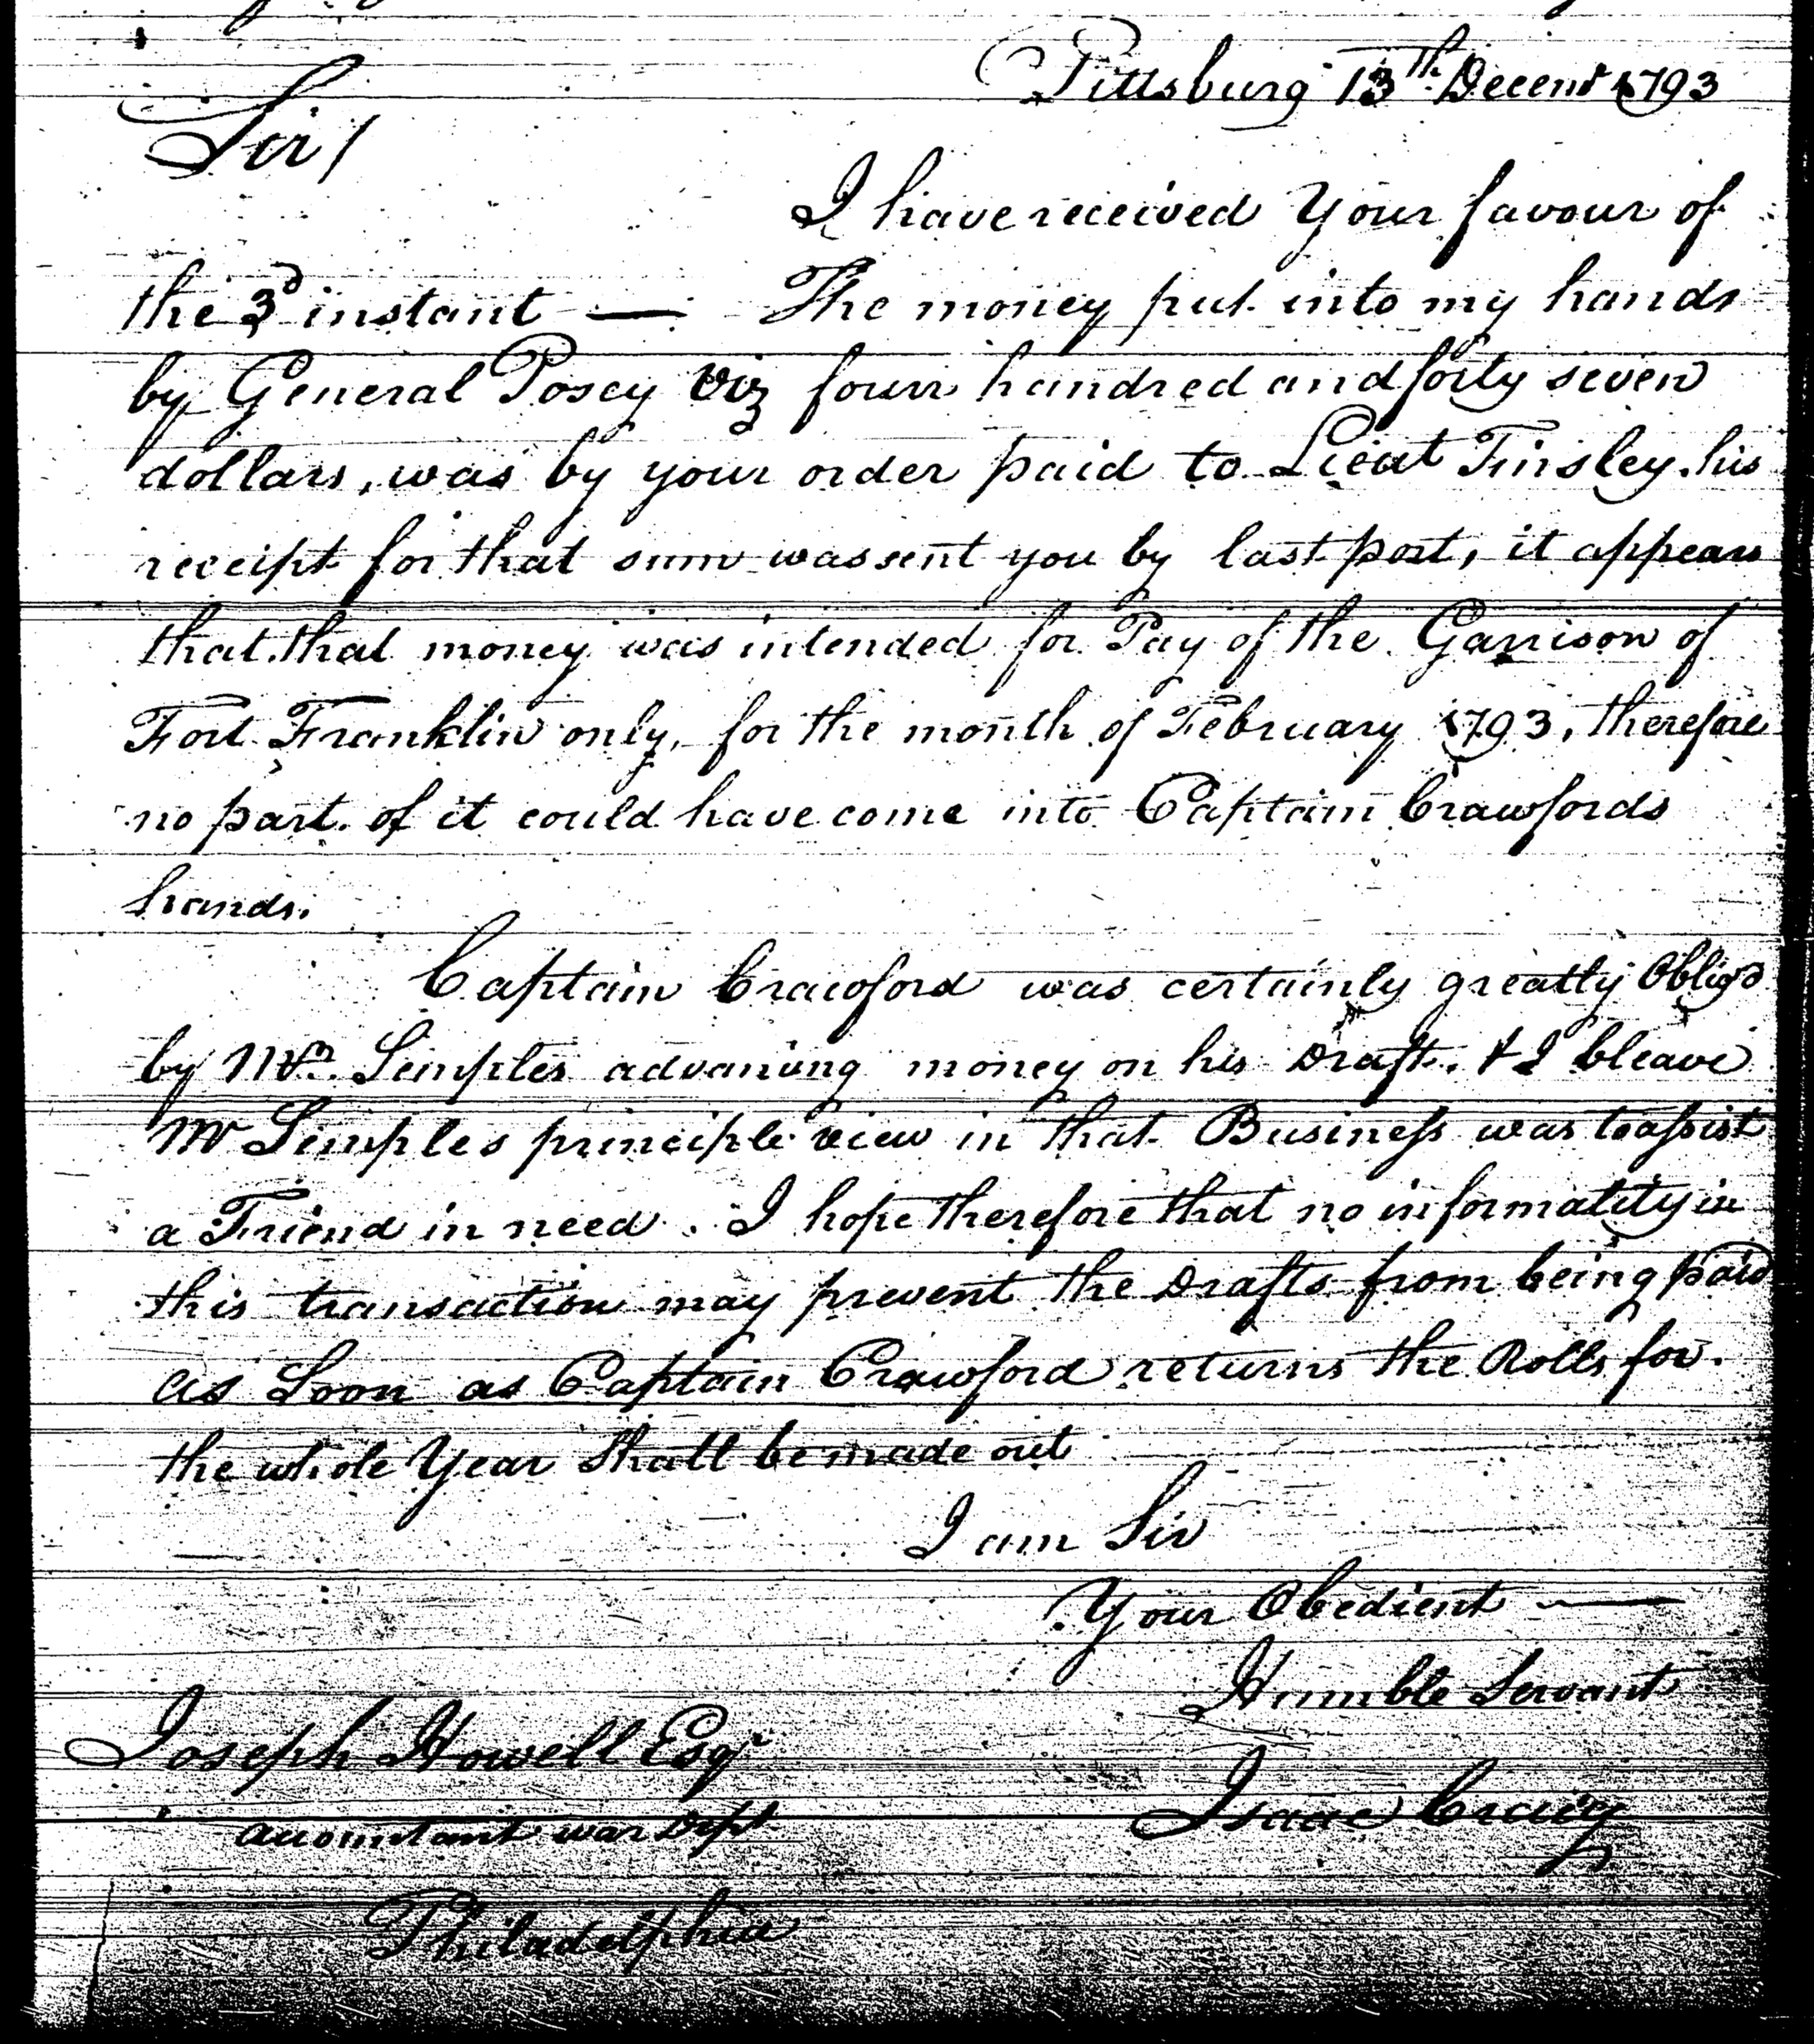 Pittsburg 13th Decemr 1793
Sir/
I have received Your favour of
the 3d instant — The money put into my hands
by General Posey Viz four hundred and forty seven
dollars, was by your order paid to Lieut Tinsley. his
receipt for that sum was sent you by last post, it appears
that that money was intended for Pay of the Garrison of
Fort Franklin only, for the month of February 1793, therefore
no part of it could have come into Captain Crawfords
hands.
Captain Crawford was certainly greatly Obligd
by Mr. Semples advancing money on his Draft. & I bleave
Mr Semples principle view in that Business was to assist
a Friend in need. I hope therefore that no informality in
this transaction may prevent the Drafts from being paid
as Soon as Captain Crawford returns the Rolls for
the whole Year Shall be made out
I am Sir
Your Obedient —
Humble Servant
Joseph Howell Esqr
Isaac Craig
Accountant war Dept
Philadelphia